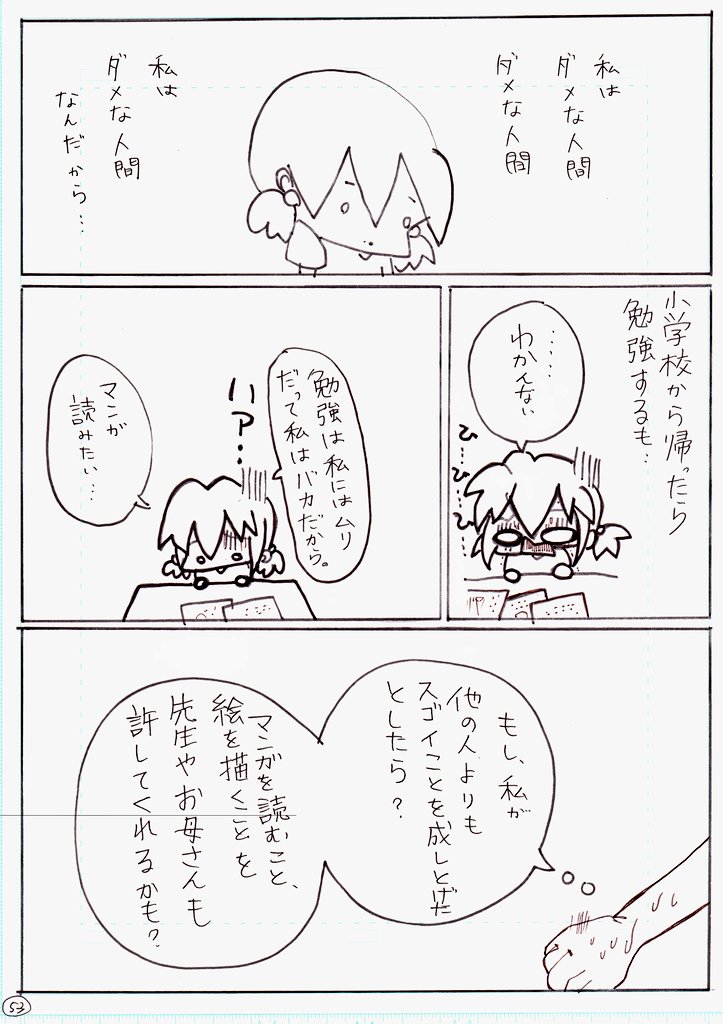 私は
ダメな人間
ダメな人間
私は
ダメな人間
なんだから…
小学校から帰ったら
勉強するも…
……
わかんない
ひ…ひ…ひ
勉強は私にはムリ
だって私はバカだから。
ハァ…
マンガ
読みたい…
もし、私が
他の人よりも
スゴイことを成しとげた
としたら?
マンガを読むこと、
絵を描くことを
先生やお母さんも
許してくれるかも?
53